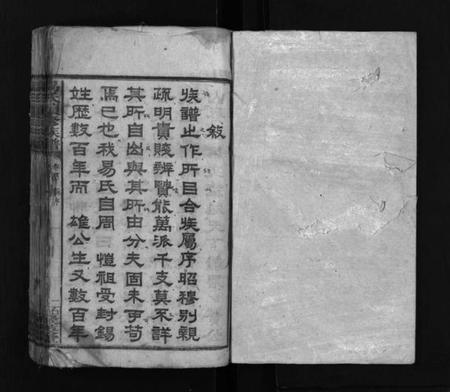 敘
族譜之作所㠯合族屬序昭穆別親
疏明貴賤辨賢能萬派千支莫不詳
其所自出與其所由分夫固未可苟
焉已也我易氏自周 愷祖受封錫
姓歷數百年而 雄公生又數百年